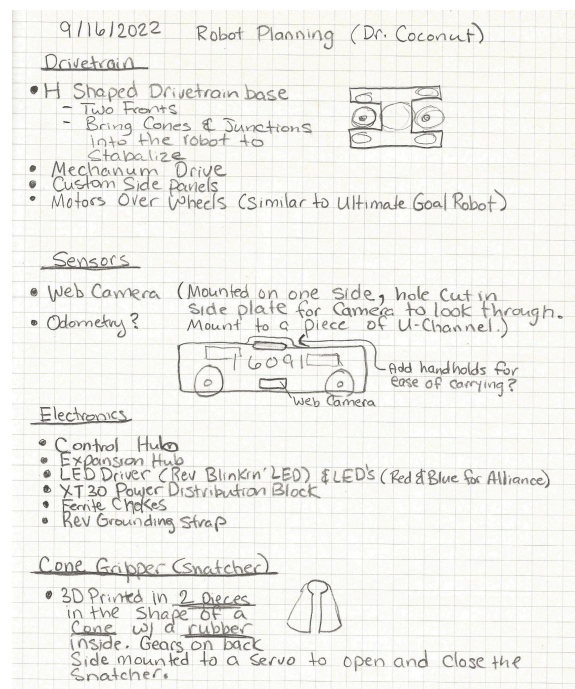 9/16/2022 Robot Planning (Dr. Coconut)
Drivetrain
• H Shaped Drivetrain base
- Two Fronts
- Bring Cones & Junctions
into the robot to
Stabalize
• Mechanum Drive
• Custom Side Panels
• Motors Over Wheels (Similar to Ultimate Goal Robot)
Sensors
• Web Camera (Mounted on one side, hole cut in
side plate for Camera to look through.
• Odometry? Mount to a piece of U-Channel.)
16091
Add handholds for
ease of carrying?
Web Camera
Electronics
• Control Hub
• Expansion Hub
• LED Driver (Rev Blinkin' LED) & LED's (Red & Blue for Alliance)
• XT30 Power Distribution Block
• Ferrite Chokes
• Rev Grounding Strap
Cone Gripper (Snatcher)
• 3D Printed in 2 pieces
in the Shape of a
Cone w/ a rubber
inside. Gears on back
Side mounted to a servo to open and close the
Snatcher.